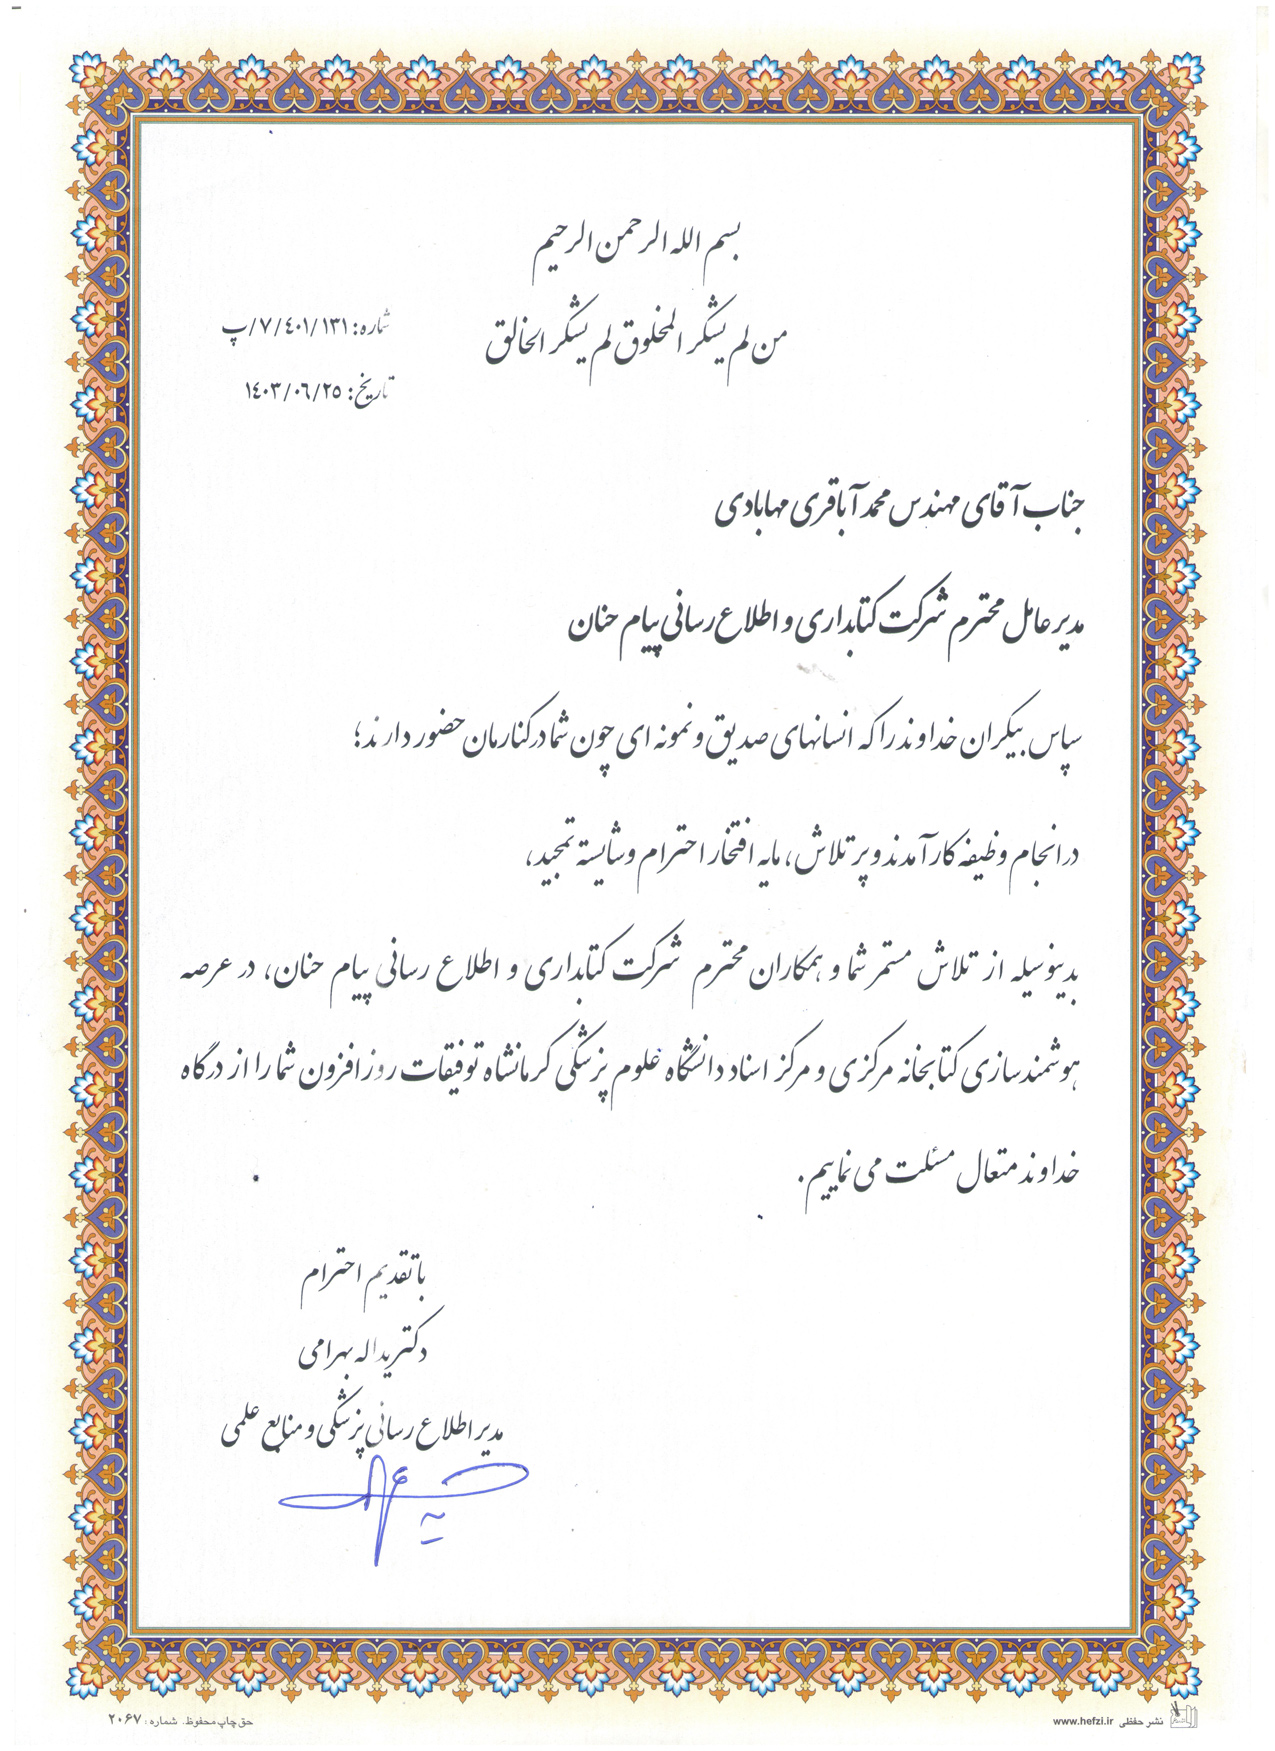 بسم الله الرحمن الرحیم
من لم یشکر المخلوق لم یشکر الخالق
شماره: ۷/۴۰۱/۱۳۱/پ
تاریخ: ۱۴۰۳/۰۶/۲۵
جناب آقای مهندس محمد آباقری مهابادی
مدیر عامل محترم شرکت کتابداری و اطلاع رسانی پیام حنان
سپاس بیکران خداوند را که انسانهای صدیق و نمونه ای چون شما در کنارمان حضور دارند؛
در انجام وظیفه کارآمدند و پر تلاش، مایه افتخار احترام و شایسته تمجید،
بدینوسیله از تلاش مستمر شما و همکاران محترم شرکت کتابداری و اطلاع رسانی پیام حنان، در عرصه
هوشمندسازی کتابخانه مرکزی و مرکز اسناد دانشگاه علوم پزشکی کرمانشاه توفیقات روز افزون شما را از درگاه
خداوند متعال مسئلت می نماییم.
با تقدیم احترام
دکتر یداله بهرامی
مدیر اطلاع رسانی پزشکی و منابع علمی
نشر حفظی www.hefzi.ir
حق چاپ محفوظ. شماره: ۲۰۶۷